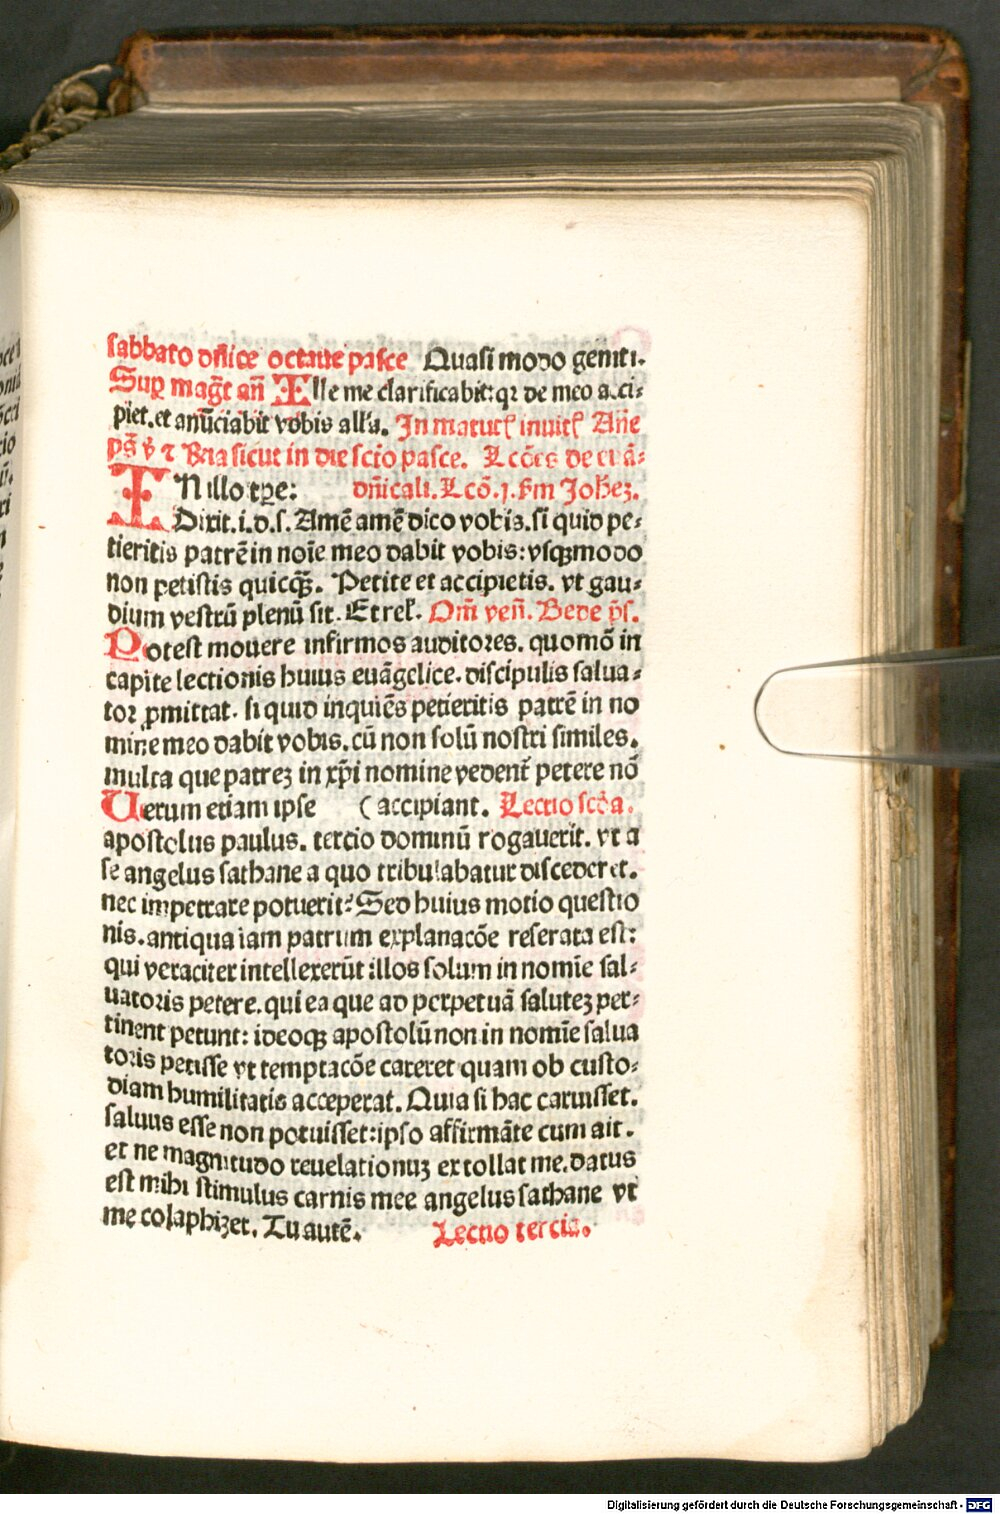 sabbato dñice octaue pasce Quasi modo geniti.
Sup magt̃ añ Ille me clarificabit: qꝛ de meo acci⸗
piet. et anũciabit vobis all'a. In matut̃ inuit̃ Añe
ps̃ v̾ ⁊ Rn̄a sicut in die sc̃io pasce. Lcões de euã⸗
IN illo tꝑe: dñicali. Lcõ. j. s̃m Joħeȝ.
Dixit. i. d. s. Amẽ amẽ dico vobis. si quid pe⸗
tieritis patrẽ in noĩe meo dabit vobis: vsqꝫ modo
non petistis quicqꝫ̃. Petite et accipietis. vt gau⸗
dium vestrũ plenũ sit. Et rel̃. Om̃ veñ. Bede p̃s.
Potest mouere infirmos auditores. quomõ in
capite lectionis huius euãgelice. discipulis salua⸗
tor ꝓmittat. si quid inquiẽs petieritis patrẽ in no
mine meo dabit vobis. cũ non solũ nostri similes.
multa que patreȝ in xp̃i nomine vedent̃ petere nõ
Uerum etiam ipse ( accipiant. Lectio sc̃da.
apostolus paulus. tercio dominũ rogauerit. vt a
se angelus sathane a quo tribulabatur discederet.
nec impetrare potuerit? Sed huius motio questio
nis. antiqua iam patrum explanacõe reserata est:
qui veraciter intellexerũt illos solum in nomĩe sal⸗
uatoris petere. qui ea que ad perpetuã saluteȝ per⸗
tinent petunt: ideoqꝫ apostolũ non in nomĩe salua
toris petisse vt temptacõe careret quam ob custo⸗
diam humilitatis acceperat. Quia si hac caruisset.
saluus esse non potuisset: ipso affirmãte cum ait.
et ne magnitudo reuelationuȝ extollat me. datus
est mihi stimulus carnis mee angelus sathane vt
me colaphizet. Tu autẽ. Lectio tercia.
Digitalisierung gefördert durch die Deutsche Forschungsgemeinschaft - DFG